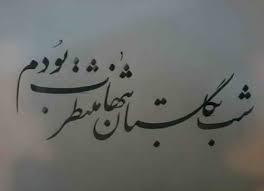 شب بگلستان تنها منتظرت بودم